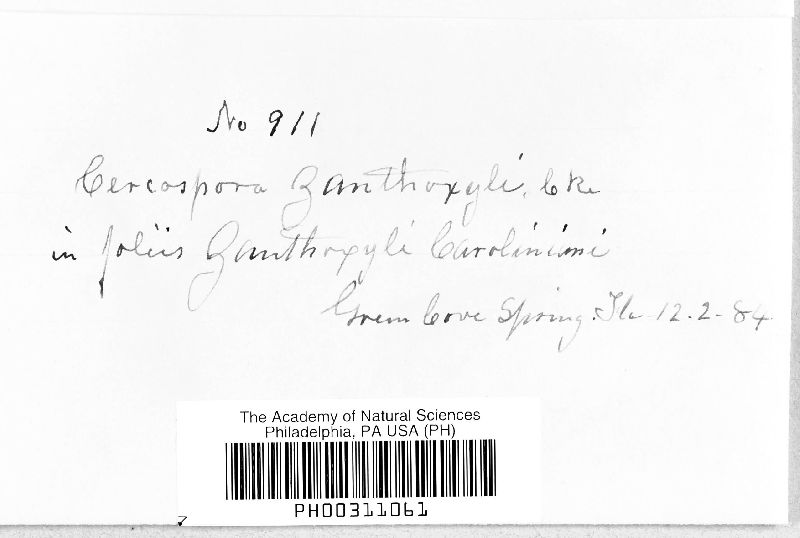 No 911
Cercospora Zanthoxyli, Cke
in foliis Zanthoxyli Caroliniani
Green Cove Spring. Fla 12.2-84
The Academy of Natural Sciences
Philadelphia, PA USA (PH)
PH00311061